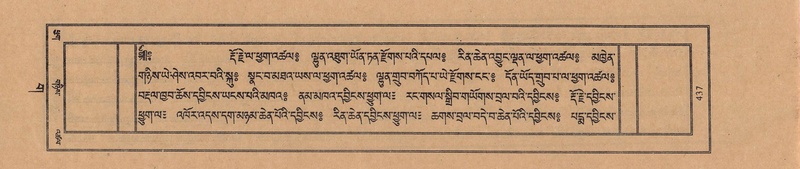 ༄༅༔ རྡོ་རྗེ་ལ་ཕྱག་འཚལ༔ ལྷུན་འཐུག་ཡོན་ཏན་རྫོགས་པའི་དཔལ༔ རིན་ཆེན་འབྱུང་ལྡན་ལ་ཕྱག་འཚལ༔ མཁྱེན་
གཉིས་ཡེ་ཤེས་འབར་བའི་སྐུ༔ སྣང་བ་མཐའ་ཡས་ལ་ཕྱག་འཚལ༔ ལྷུན་གྲུབ་བཀོད་པ་ཡེ་རྫོགས་ངང་༔ དོན་ཡོད་གྲུབ་པ་ལ་ཕྱག་འཚལ༔
བརྡལ་ཁྱབ་ཆོས་དབྱིངས་ཡངས་པའི་མཁའ༔ ནམ་མཁའ་དབྱིངས་ཕྱུག་ལ༔ རང་གསལ་སྒྲིབ་གཡོགས་བྲལ་བའི་དབྱིངས༔ རྡོ་རྗེ་དབྱིངས་
ཕྱུག་ལ༔ འཁོར་འདས་དག་མཉམ་ཆེན་པོའི་དབྱིངས༔ རིན་ཆེན་དབྱིངས་ཕྱུག་ལ༔ ཆགས་བྲལ་བདེ་བ་ཆེན་པོའི་དབྱིངས༔ པདྨ་དབྱིངས་
437